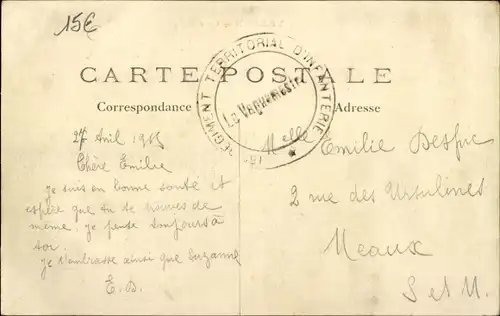 15€
CARTE POSTALE
RÉGIMENT TERRITORIAL D'INFANTERIE
Le Vaguemestre
Correspondance
Adresse
27 Avril 1915
Chère Emilie
je suis en bonne santé et
espère que tu te trouves de
même. je pense toujours à
toi.
je t'embrasse ainsi que Suzanne
E. D.
Melle Emilie
2 rue des Ursulines
Meaux
S et M.